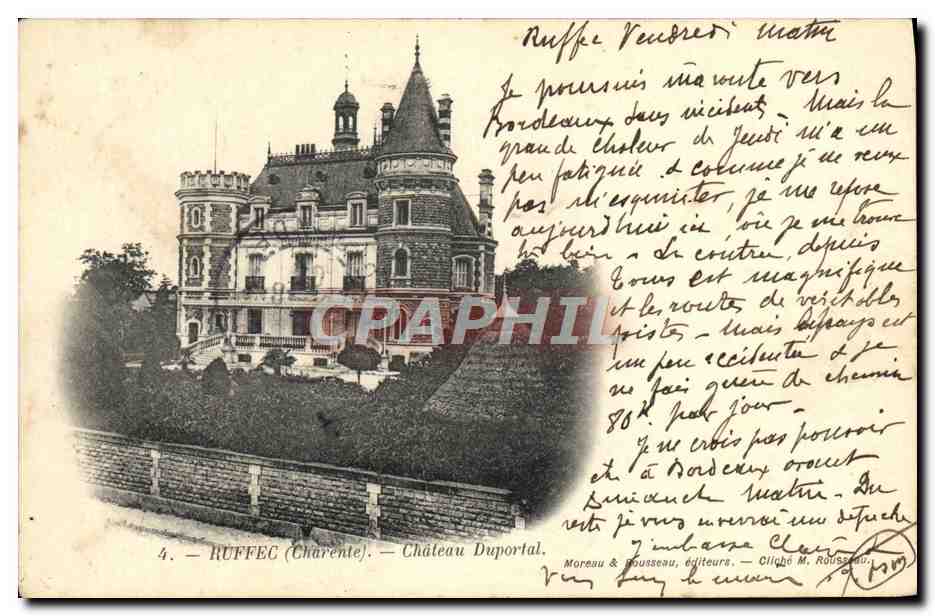 Ruffec Vendredi matin
Je poursuis ma route vers
Bordeaux sans incident. Mais la
grande chaleur de Jeudi m'a un
peu fatiguée & comme je ne veux
pas m'esquinter, je me repose
aujourd'hui ici où je me trouve
bien - La contrée, depuis
Tours est magnifique
et les routes de véritables
pistes - Mais le pays est
un peu accidenté & je
ne fais guère de chemin
80k. par jour -
Je ne crois pas pouvoir
être à Bordeaux avant
Dimanche matin - Du
reste je vous enverrai une dépêche
J'embrasse Claire
4. - RUFFEC (Charente). - Château Duportal.
Moreau & Rousseau, éditeurs. - Cliché M. Rousseau.
CPAPHIL